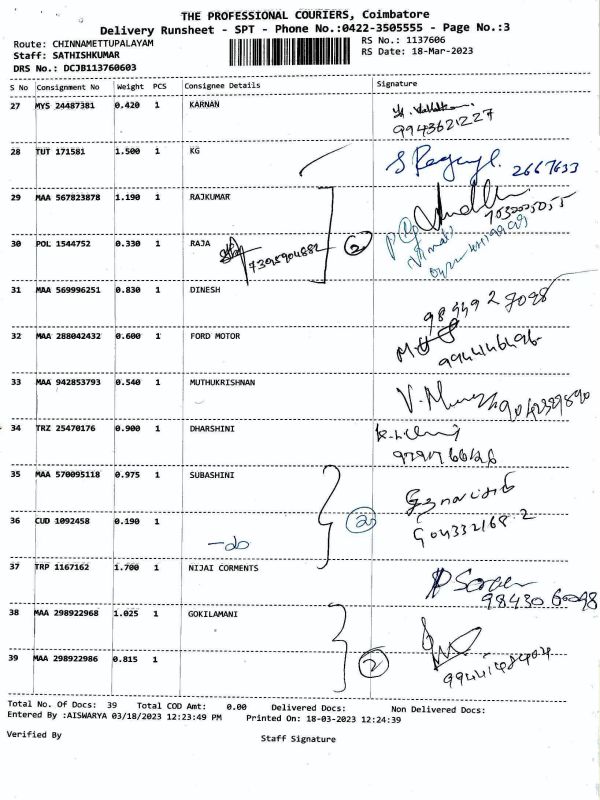 THE PROFESSIONAL COURIERS, Coimbatore
Delivery Runsheet - SPT - Phone No.:0422-3505555 - Page No.:3
Route: CHINNAMETTUPALAYAM
RS No.: 1137606
Staff: SATHISHKUMAR
RS Date: 18-Mar-2023
DRS No.: DCJB113760603
S No Consignment No Weight PCS Consignee Details Signature
27 MYS 24487381 0.420 1 KARNAN
9943621227
28 TUT 171581 1.500 1 KG
2667633
29 MAA 567823878 1.190 1 RAJKUMAR
30 POL 1544752 0.330 1 RAJA
7395904882 2
31 MAA 569996251 0.830 1 DINESH
32 MAA 288042432 0.600 1 FORD MOTOR
9944146496
33 MAA 942853793 0.540 1 MUTHUKRISHNAN
34 TRZ 25470176 0.900 1 DHARSHINI
35 MAA 570095118 0.975 1 SUBASHINI
36 CUD 1092458 0.190 1
-do 2
37 TRP 1167162 1.700 1 NIJAI CORMENTS
9843060098
38 MAA 298922968 1.025 1 GOKILAMANI
39 MAA 298922986 0.815 1
2
Total No. Of Docs: 39 Total COD Amt: 0.00 Delivered Docs: Non Delivered Docs:
Entered By :AISWARYA 03/18/2023 12:23:49 PM Printed On: 18-03-2023 12:24:39
Verified By
Staff Signature